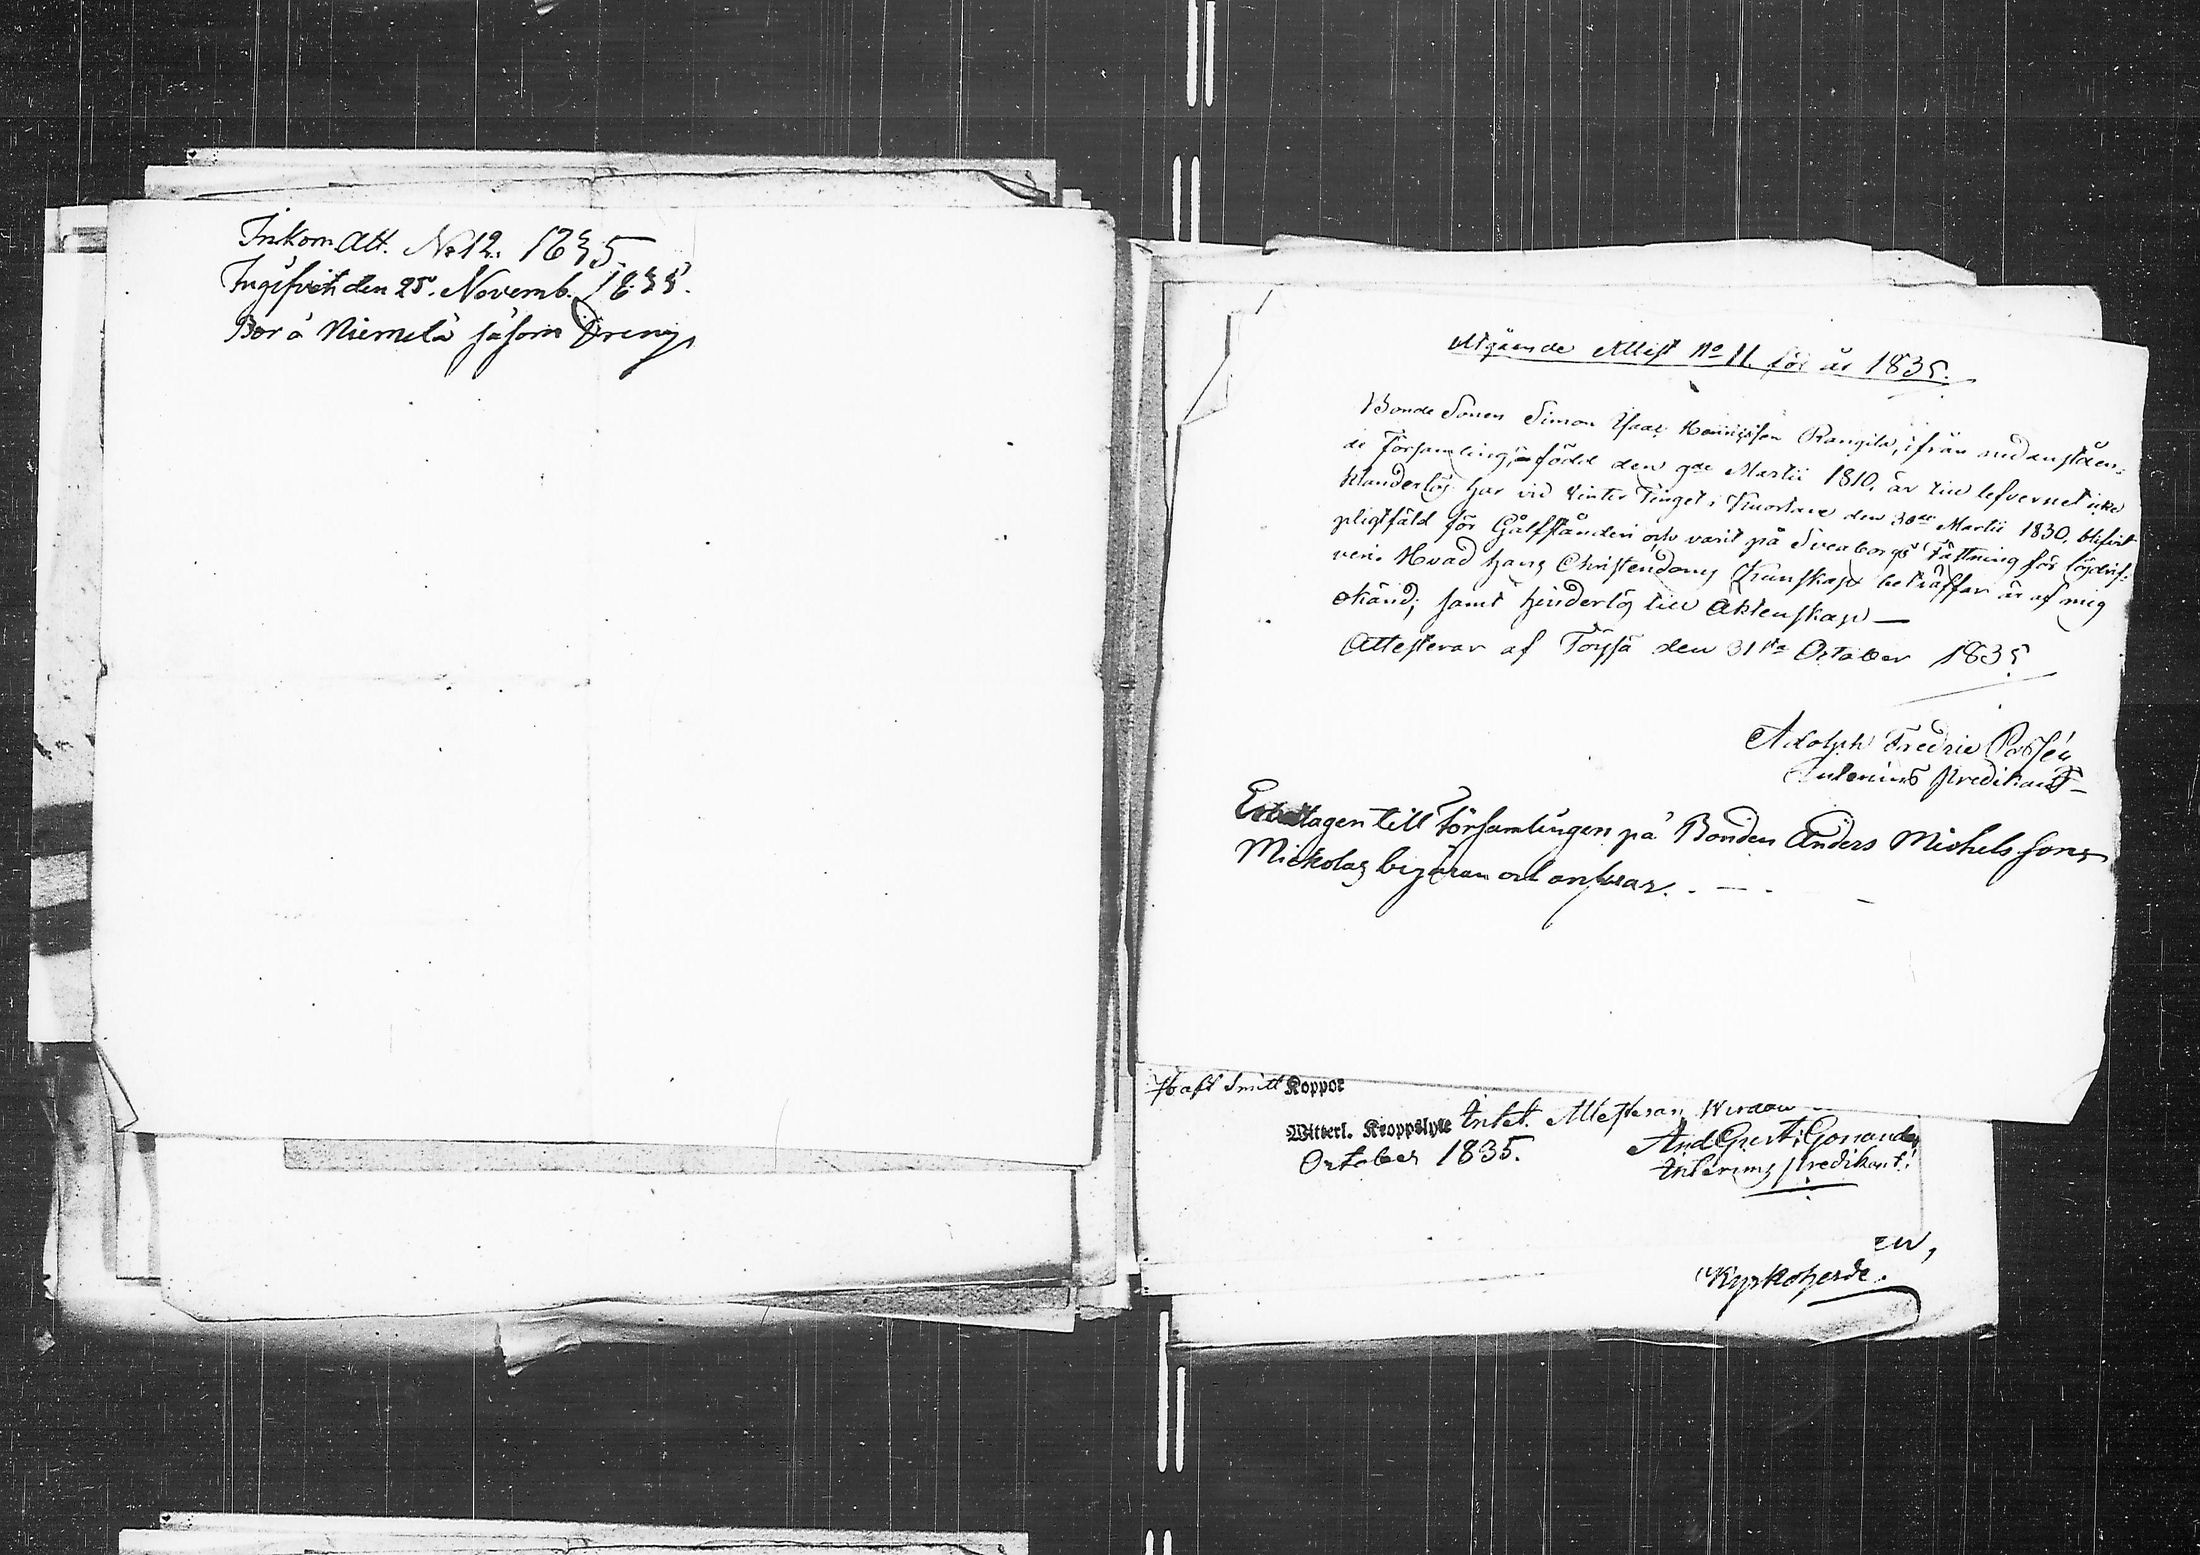 Inkom Att. No 12. 1835.
Ingifvit den 25. Novemb. 1835.
Bor å Niemelä såsom Dreng,
Utgående Attest No 11. för år 1835.
Bonde Sonen Simon Isaac Rangila, ifrån nedanståen-
de Församling, född den 9de Martii 1810, är till lefvernet icke
klanderlös har vid Vinter Tinget i Kuortane den 30de Martii 1830, blifvit
pligtfäld för och varit på Sveaborgs Fästning för lösdrif-
veri. Hvad hans Christendoms Kunskap beträffar är af mig
okänd; samt hinderlös till Äktenskap —
Attesterar af Töysä den 31sta October 1835
Adolph Fredric
Interims Predikant
tagen till Församlingen på Bonden Anders Michelssons
Mickolas begäran och ansvar. . — .
Haft Smitt Koppor
Witterl. Kroppslyte Intet. Attesteran Wirdou
October 1835.
And Gust Gonander
Interims Predikant.
Kyrkoherde.